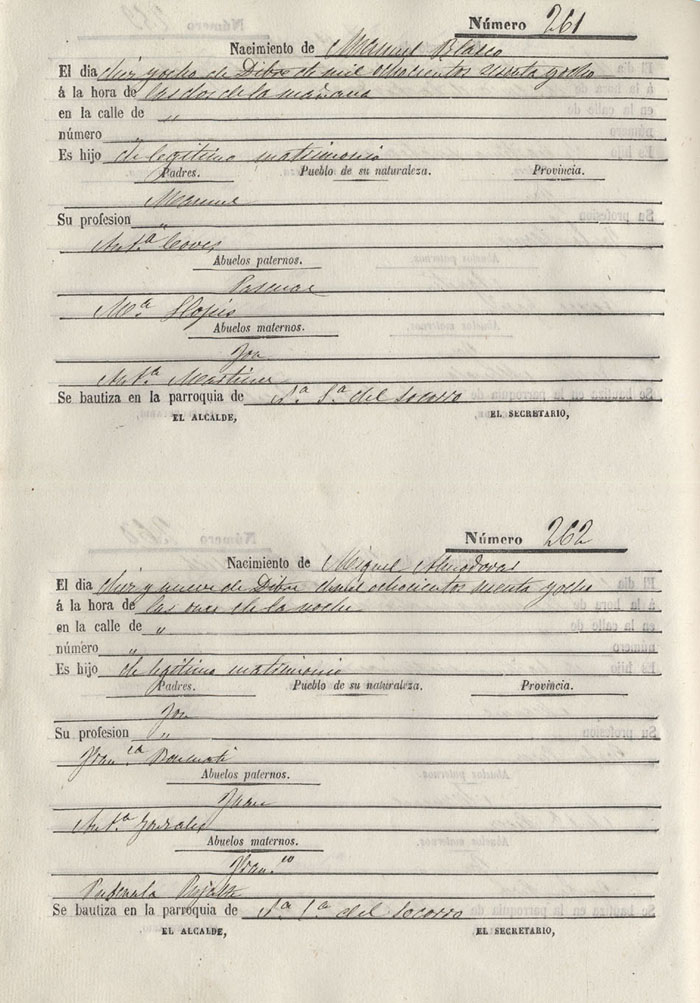 Número 261
Nacimiento de Manuel Blasco
El dia diez y ocho de Dibre de mil ochocientos sesenta y ocho
á la hora de las dos de la mañana
en la calle de "
número "
Es hijo de legitimo matrimonio
Padres. Pueblo de su naturaleza. Provincia.
Manuel
Su profesion "
Ant.ª Coves
Abuelos paternos.
Pascual
M.ª Llopis
Abuelos maternos.
Jose
Ant.ª Martinez
Se bautiza en la parroquia de N.ª S.ª del Socorro
EL ALCALDE, EL SECRETARIO,
Número 262
Nacimiento de Miguel Almodovar
El dia diez y nueve de Dibre de mil ochocientos sesenta y ocho
á la hora de las once de la noche
en la calle de "
número "
Es hijo de legitimo matrimonio
Padres. Pueblo de su naturaleza. Provincia.
Jose
Su profesion "
Fran.ca
Abuelos paternos.
Juan
Ant.ª Gonzalez
Abuelos maternos.
Fran.co
Se bautiza en la parroquia de N.ª S.ª del Socorro
EL ALCALDE, EL SECRETARIO,